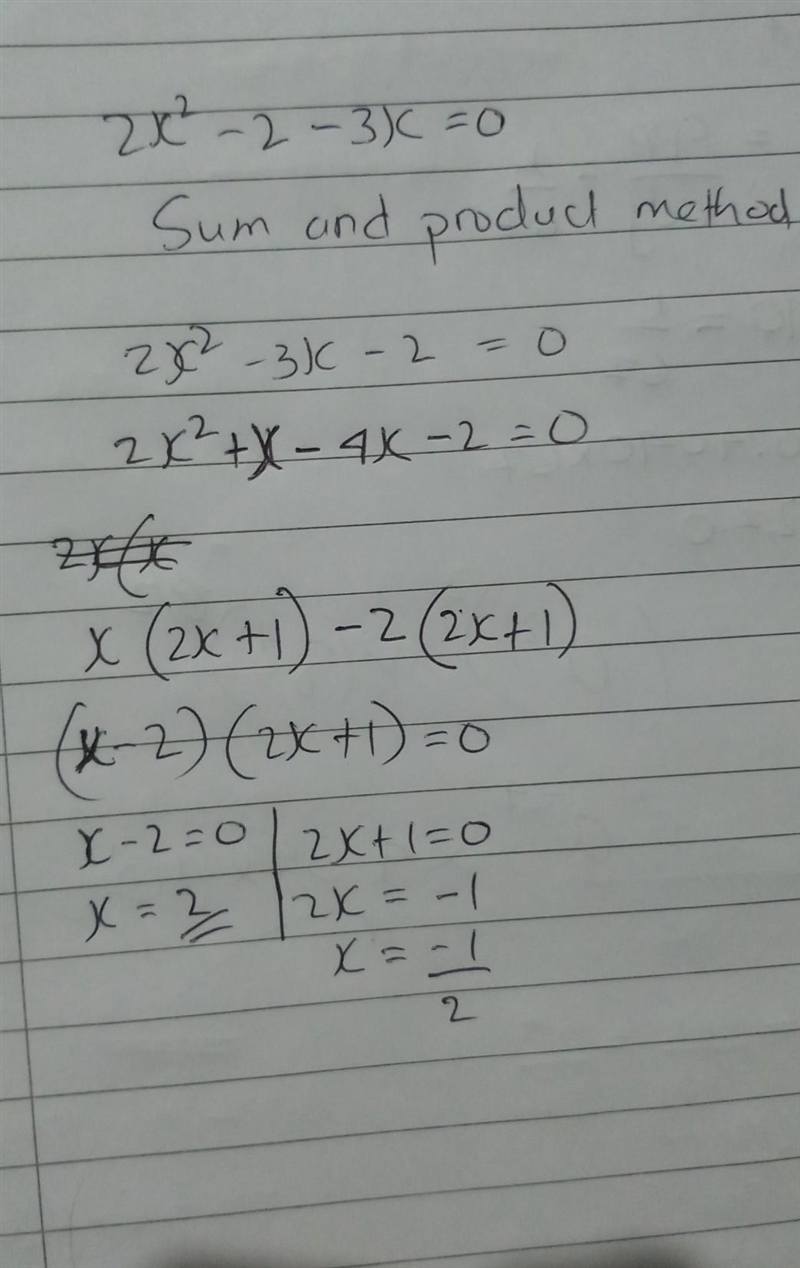 2x² - 2 - 3x = 0
Sum and product method
2x² - 3x - 2 = 0
2x² + x - 4x - 2 = 0
2x(x
x(2x+1) - 2(2x+1)
(x-2)(2x+1) = 0
x - 2 = 0 | 2x + 1 = 0
x = 2 | 2x = -1
x = -1/2